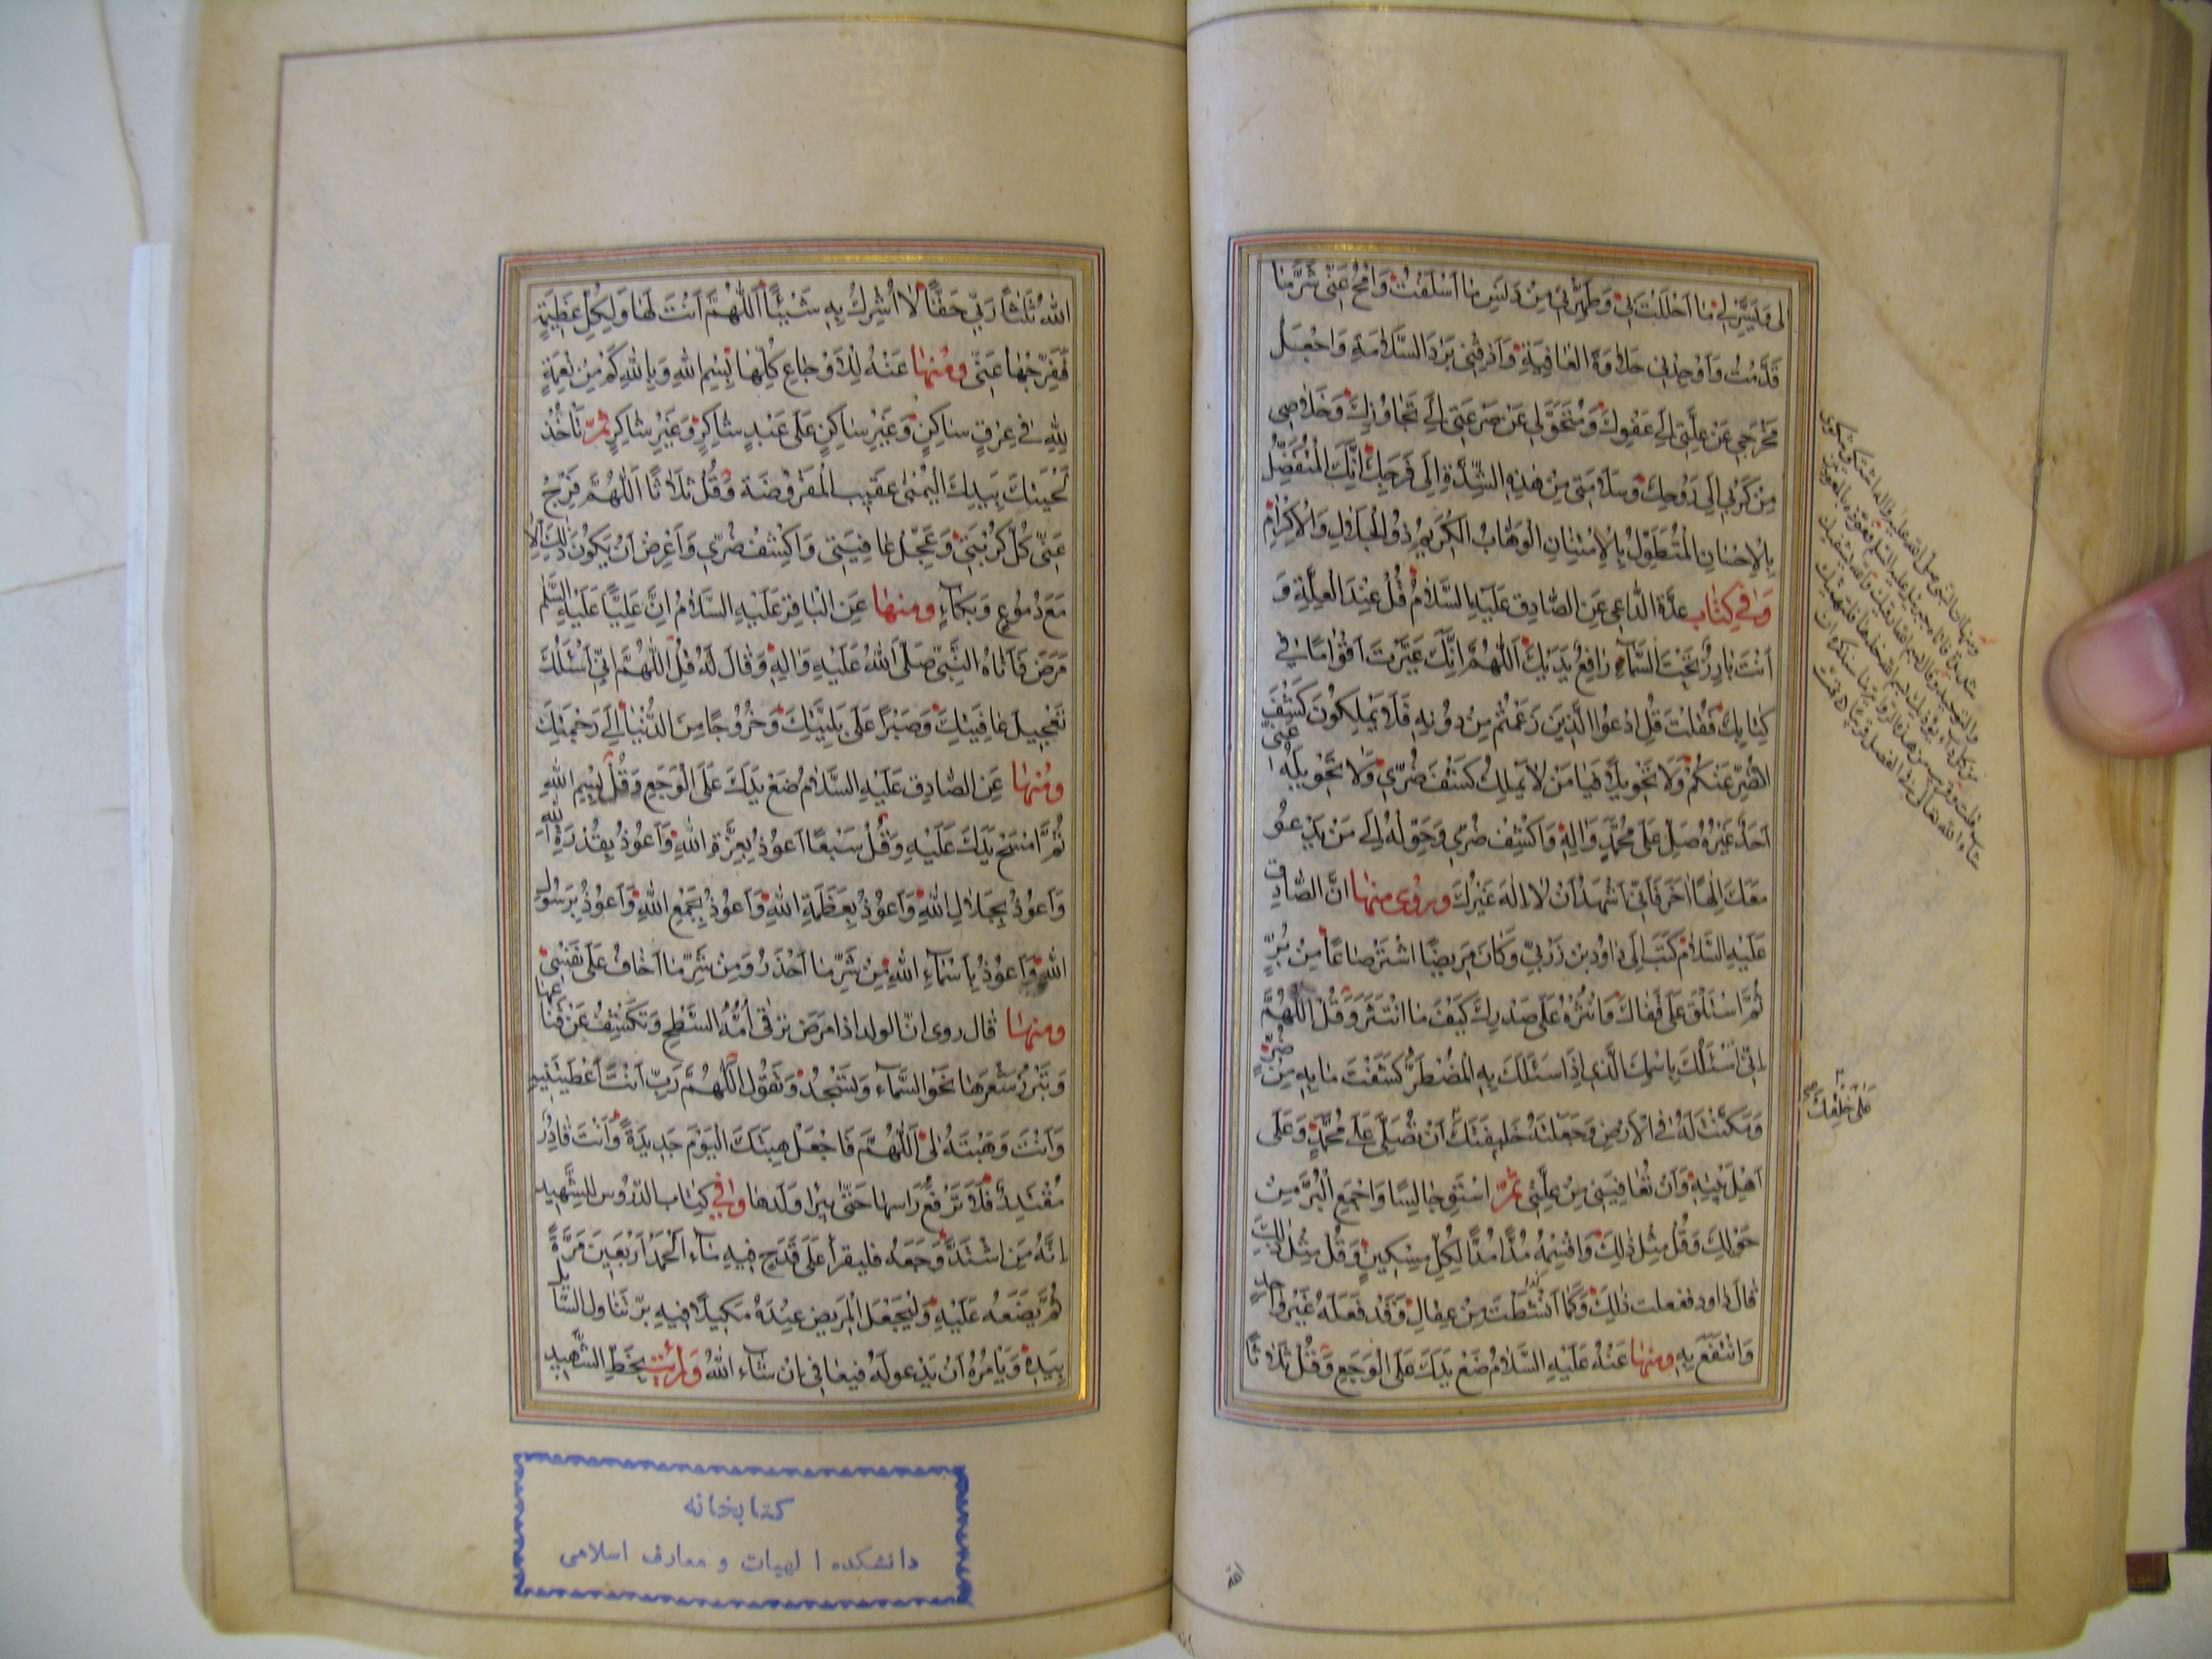 لى وَيَسِّرْ لى مٰا اَحْلَلْتَ بى وَطَهِّرْنى مِنْ دَنَسِ مٰا اَسْلَفْتُ وَامْحُ عَنّى شَرَّ مٰا
قَدَّمْتُ وَاَوْجِدْنى حَلٰاوَةَ الْعٰافِيَةِ وَاَذِقْنى بَرْدَ السَّلٰامَةِ وَاجْعَلْ
مَخْرَجى عَنْ عِلَّتى اِلٰى عَفْوِكَ وَمُتَحَوَّلى عَنْ صَرْعَتى اِلٰى تَجٰاوُزِكَ وَخَلٰاصى
مِنْ كَرْبى اِلٰى رَوْحِكَ وَسَلٰامَتى مِنْ هٰذِهِ الشِّدَّةِ اِلٰى فَرَجِكَ اِنَّكَ الْمُتَفَضِّلُ
بِالْاِحْسٰانِ الْمُتَطَوِّلُ بِالْاِمْتِنٰانِ الْوَهّٰابُ الْكَريمُ ذُو الْجَلٰالِ وَالْاِكْرٰامِ
وَفى كِتٰابِ عدّة الداعى عَنِ الصّٰادِقِ عَلَيْهِ السَّلٰامُ قُلْ عِنْدَ الْعِلَّةِ وَ
اَنْتَ بٰارِزٌ تَحْتَ السَّمٰاءِ رٰافِعٌ يَدَيْكَ اَللّٰهُمَّ اِنَّكَ عَيَّرْتَ اَقْوٰامًا فى
كِتٰابِكَ فَقُلْتَ قُلِ ادْعُوا الَّذينَ زَعَمْتُمْ مِنْ دُونِهِ فَلٰا يَمْلِكُونَ كَشْفَ
الضُّرِّ عَنْكُمْ وَلٰا تَحْويلًا فَيٰا مَنْ لٰا يَمْلِكُ كَشْفَ ضُرّى وَلٰا تَحْويلَهُ عَنّى
اَحَدٌ غَيْرُهُ صَلِّ عَلٰى مُحَمَّدٍ وَاٰلِهِ وَاكْشِفْ ضُرّى وَحَوِّلْهُ اِلٰى مَنْ يَدْعُو
مَعَكَ اِلٰهًا اٰخَرَ فَاِنّى اَشْهَدُ اَنْ لٰا اِلٰهَ غَيْرُكَ وروى منها انَّ الصّٰادِقَ
عَلَيْهِ السَّلٰامُ كَتَبَ اِلٰى دٰاوُدَ بْنِ زَرْبى وَكٰانَ مَريضًا اشْتَرِ صٰاعًا مِنْ بُرٍّ
ثُمَّ اسْتَلْقِ عَلٰى قَفٰاكَ وَانْثُرْهُ عَلٰى صَدْرِكَ كَيْفَ مَا انْتَثَرَ وَقُلْ اَللّٰهُمَّ
اِنّى اَسْئَلُكَ بِاسْمِكَ الَّذى اِذٰا سَئَلَكَ بِهِ الْمُضْطَرُّ كَشَفْتَ مٰا بِهِ مِنْ ضُرٍّ
وَمَكَّنْتَ لَهُ فِى الْاَرْضِ وَجَعَلْتَهُ خَليفَتَكَ اَنْ تُصَلِّىَ عَلٰى مُحَمَّدٍ وَعَلٰى
عَلٰى خَلْقِكَ
اَهْلِ بَيْتِهِ وَاَنْ تُعٰافِيَنى مِنْ عِلَّتى ثمّ اسْتَوِ جٰالِسًا وَاجْمَعِ الْبُرَّ مِنْ
حَوْلِكَ وَقُلْ مِثْلَ ذٰلِكَ وَاقْسِمْهُ مُدًّا مُدًّا لِكُلِّ مِسْكينٍ وَقُلْ مِثْلَ ذٰلِكَ
قٰالَ دٰاود ففعلت ذٰلِكَ وَكَاَنَّمٰا نَشَطْتُ مِنْ عِقٰالٍ وَقَدْ فَعَلَهُ غَيْرُ وٰاحِدٍ
وَانْتَفَعَ بِهِ ومنها عَنْهُ عَلَيْهِ السَّلٰامُ ضَعْ يَدَكَ عَلَى الْوَجَعِ وَقُلْ ثَلٰاثًا
الله
اَللّٰهُ ثَلٰثًا رَبّى حَقًّا لٰا اُشْرِكُ بِهِ شَيْئًا اَللّٰهُمَّ اَنْتَ لَهٰا وَلِكُلِّ عَظيمَةٍ
فَفَرِّجْهٰا عَنّى ومنها عَنْهُ لِلْاَوْجٰاعِ كُلِّهٰا بِسْمِ اللّٰهِ وَبِاللّٰهِ كَمْ مِنْ نِعْمَةٍ
لِلّٰهِ فى عِرْقٍ سٰاكِنٍ وَغَيْرِ سٰاكِنٍ عَلٰى عَبْدٍ شٰاكِرٍ وَغَيْرِ شٰاكِرٍ ثمّ تَأْخُذُ
لَحْيَتَكَ بِيَدِكَ الْيُمْنٰى عَقيبَ الْمَفْرُوضَة وَقُلْ ثَلٰاثًا اَللّٰهُمَّ فَرِّجْ
عَنّى كُرْبَتى وَعَجِّلْ عٰافِيَتى وَاكْشِفْ ضُرّى وَاحْرِصْ اَنْ يَكُونَ ذٰلِكَ
مَعَ دُمُوعٍ وَبُكٰاءٍ ومنها عَنِ الْبٰاقِرِ عَلَيْهِ السَّلٰامُ اِنَّ عَلِيًّا عَلَيْهِ السَّلٰم
مَرَضَ فَاَتٰاهُ النَّبِىُّ صَلَّى اللّٰهُ عَلَيْهِ وَاٰلِهِ وَقٰالَ لَهُ قُلْ اَللّٰهُمَّ اِنّى اَسْئَلُكَ
تَعْجيلَ عٰافِيَتِكَ وَصَبْرًا عَلٰى بَلِيَّتِكَ وَخُرُوجًا مِنَ الدُّنْيٰا اِلٰى رَحْمَتِكَ
ومنها عَنِ الصّٰادِقِ عَلَيْهِ السَّلٰامُ ضَعْ يَدَكَ عَلَى الْوَجَعِ وَقُلْ بِسْمِ اللّٰهِ
ثُمَّ امْسَحْ يَدَكَ عَلَيْهِ وَقُلْ سَبْعًا اَعُوذُ بِعِزَّةِ اللّٰهِ وَاَعُوذُ بِقُدْرَةِ اللّٰهِ
وَاَعُوذُ بِجَلٰالِ اللّٰهِ وَاَعُوذُ بِعَظَمَةِ اللّٰهِ وَاَعُوذُ بِجَمْعِ اللّٰهِ وَاَعُوذُ بِرَسُولِ
اللّٰهِ وَاَعُوذُ بِاَسْمٰاءِ اللّٰهِ مِنْ شَرِّ مٰا اَحْذَرُ وَمِنْ شَرِّ مٰا اَخٰافُ عَلٰى نَفْسى
ومنها قال روى انّ الولد اذا مَرَضَ تَرْقٰى اُمُّهُ السَّطْحَ وَتَكْشِفُ عَنْ قِنٰاعِهٰا
وَتَبْرُزُ شَعْرَهٰا نَحْوَ السَّمٰاءِ وَتَسْجُدُ وَتَقُولُ اَللّٰهُمَّ رَبِّ اَنْتَ اَعْطَيْتَنيهِ
وَاَنْتَ وَهَبْتَهُ لى اَللّٰهُمَّ فَاجْعَلْ هِبَتَكَ الْيَوْمَ جَديدَةً وَاَنْتَ قٰادِرٌ
مُقْتَدِرٌ فَلٰا تَرْفَعُ رَاسهٰا حَتّٰى يَبْرَا وَلَدهٰا وفى كِتٰاب الدّرُوس للشَّهيدِ
اِنَّهُ مَنِ اشْتَدَّ وَجَعُه فليقرأ عَلٰى قَدَحٍ فيهِ مٰاءٌ اَلْحَمْدَ اَرْبَعينَ مَرَّةً
ثُمَّ يَضَعُه عَلَيْهِ وَلْيَجْعَلِ الْمَريض عِنْدَهُ مَكيلًا فيهِ بُرّ يُنَاوِلُ السّٰائِلَ
بِيَدِهِ وَيَأْمُرُهُ اَنْ يَدْعُو لَهُ فيعٰافى اِنْ شٰاء اللّٰهُ ورأيت بِخَطِّ الشَّهيدِ
كتابخانه
دانشكده الهيات و معارف اسلامى